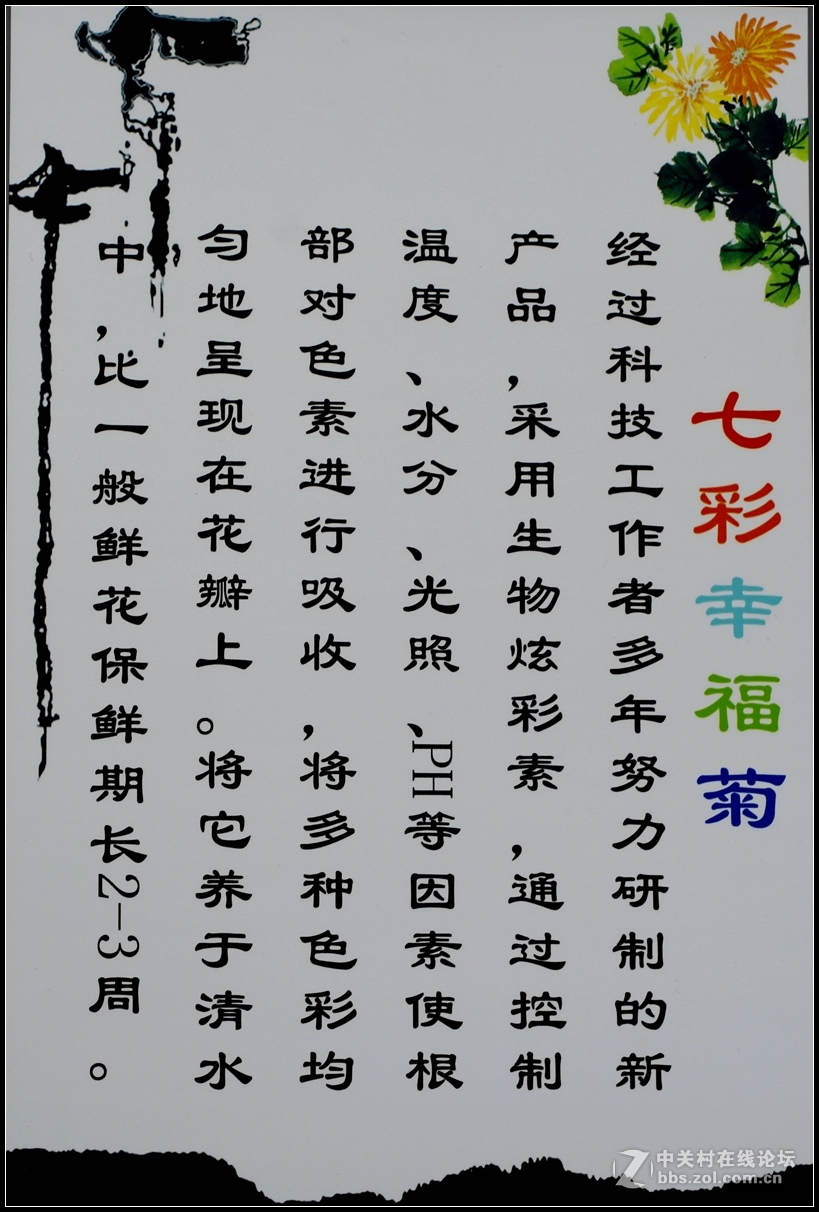 七彩幸福菊
经过科技工作者多年努力研制的新
产品，采用生物炫彩素，通过控制
温度、水分、光照、PH等因素使根
部对色素进行吸收，将多种色彩均
匀地呈现在花瓣上。将它养于清水
中，比一般鲜花保鲜期长2-3周。
中关村在线论坛
bbs.zol.com.cn